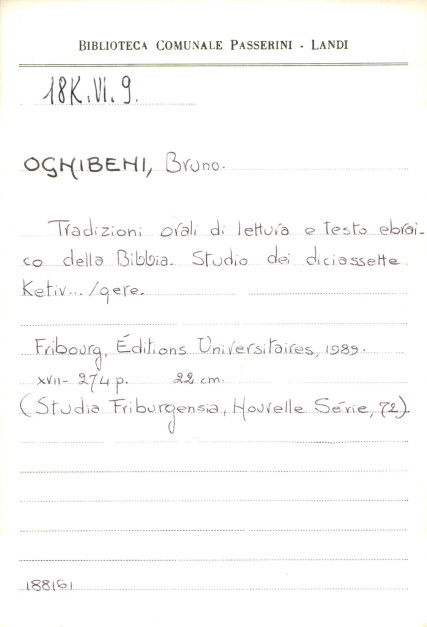 BIBLIOTECA COMUNALE PASSERINI - LANDI
18K.VI.9.
OGNIBENI, Bruno.
Tradizioni orali di lettura e testo ebrai-
co della Bibbia. Studio dei diciassette
Ketiv... /qere.
Fribourg, Éditions Universitaires, 1989.
XVII- 274 p. 22 cm.
(Studia Friburgensia, Nouvelle Série, 72).
188161